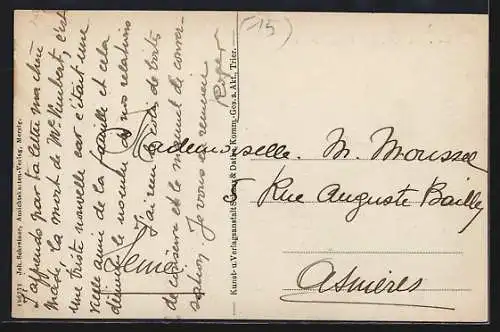 J'apprends par ta lettre ma chère
la mort de Mr Humbert, c'est
une triste nouvelle car c'était une
réelle amie de la famille et cela
diminue le nombre de nos relations
J'ai reçu de boîte
de cuisine et le manuel de conver-
sation. Je vous en remercie
Roger
(15)
Mademoiselle M. Mousset
5 Rue Auguste Bailly
Asnières
Joh. Schreiner, Ansichtskarten-Verlag,
Kunst- u. Verlagsanstalt Schaar & Dathe, Komm.-Ges. a. Akt., Trier.